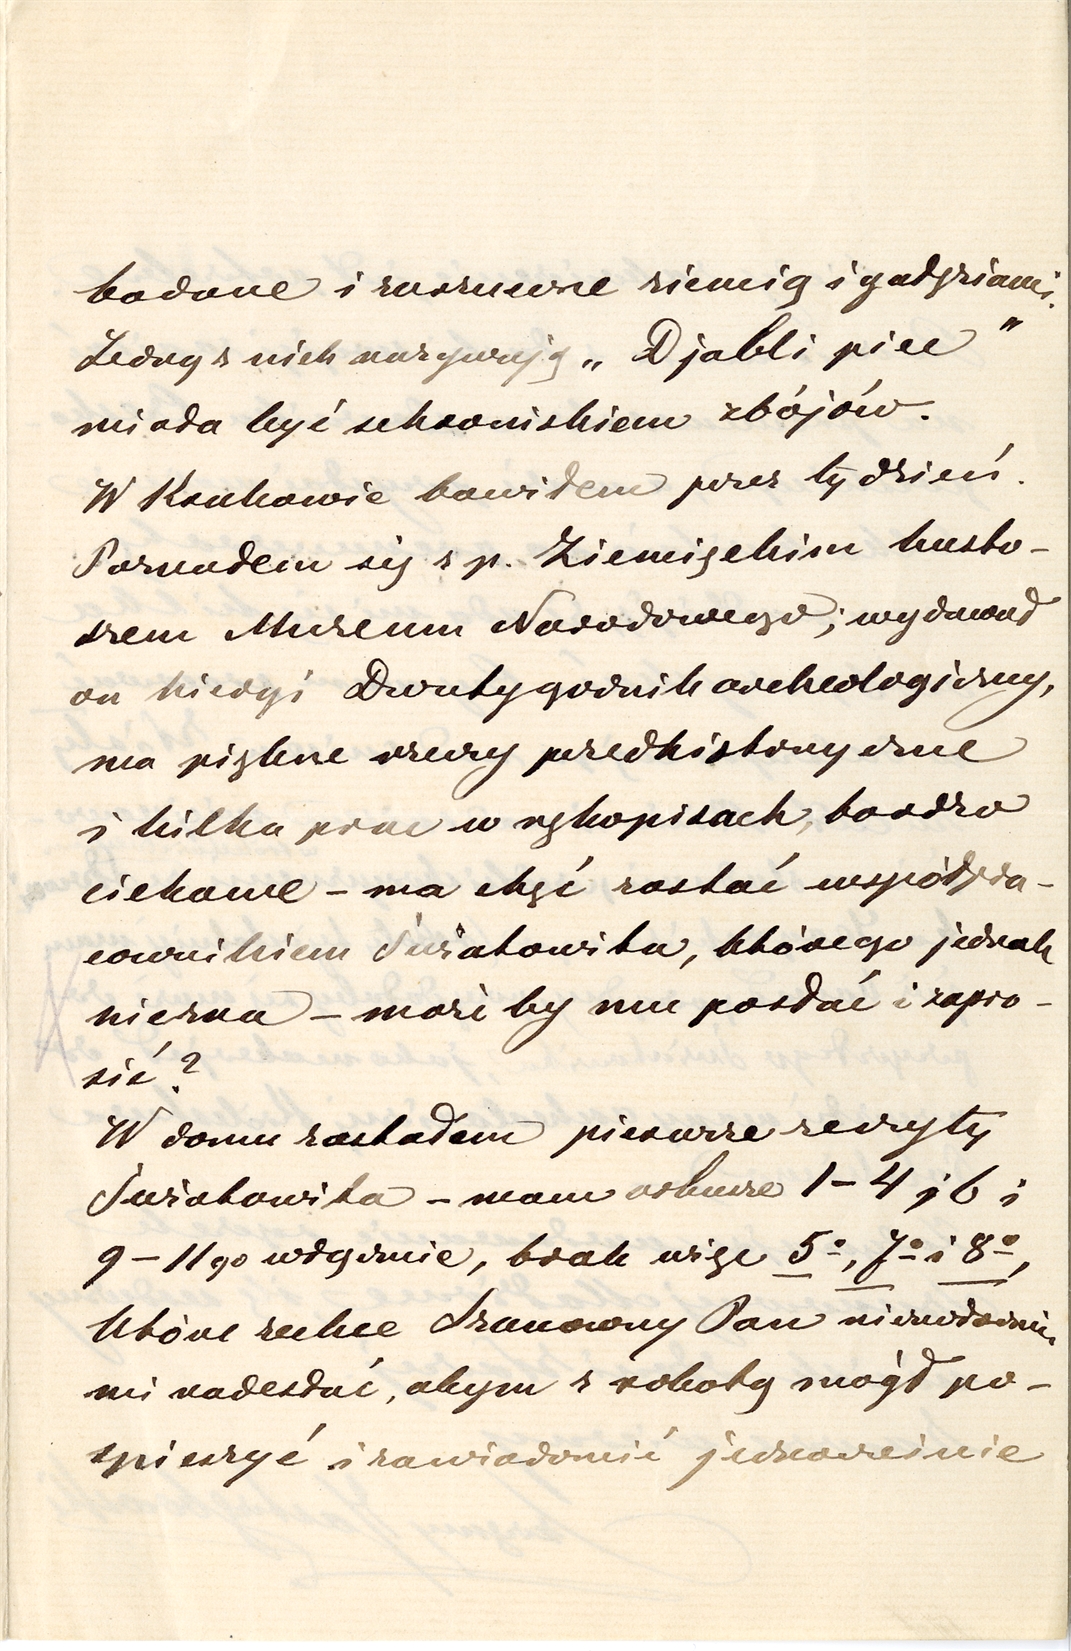 badane i zasunięte ziemią i gałęziami.
Jedną z nich nazywają „Djabli piec"
miała być schroniskiem zbójów.
W Krakowie bawiłem przez tydzień.
Poznałem się z p. Ziemięckim kusto-
szem Muzeum Narodowego; wydawał
on kiedyś Dwutygodnik archeologiczny,
ma piękne rzeczy przedhistoryczne
i kilka prac w rękopisach, bardzo
ciekawe – ma chęć zostać współpra-
cownikiem Światowita, którego jednak
niezna – może by mu posłać i zapro-
sić?
W domu zastałem pierwsze zeszyty
Światowita – mam arkusze 1–4 i 6 i
9–11go włącznie, brak więc 5º, 7º i 8º,
które zechce Szanowny Pan niezwłocznie
mi nadesłać, abym z robotą mógł po-
spieszyć i zawiadomić jednocześnie